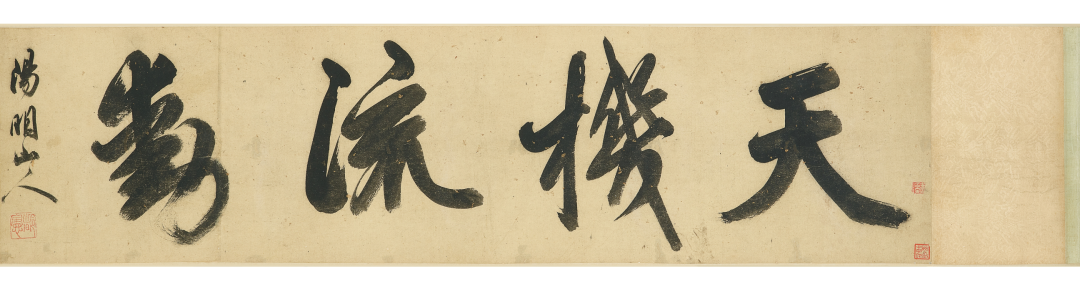 天機流動
陽明山人